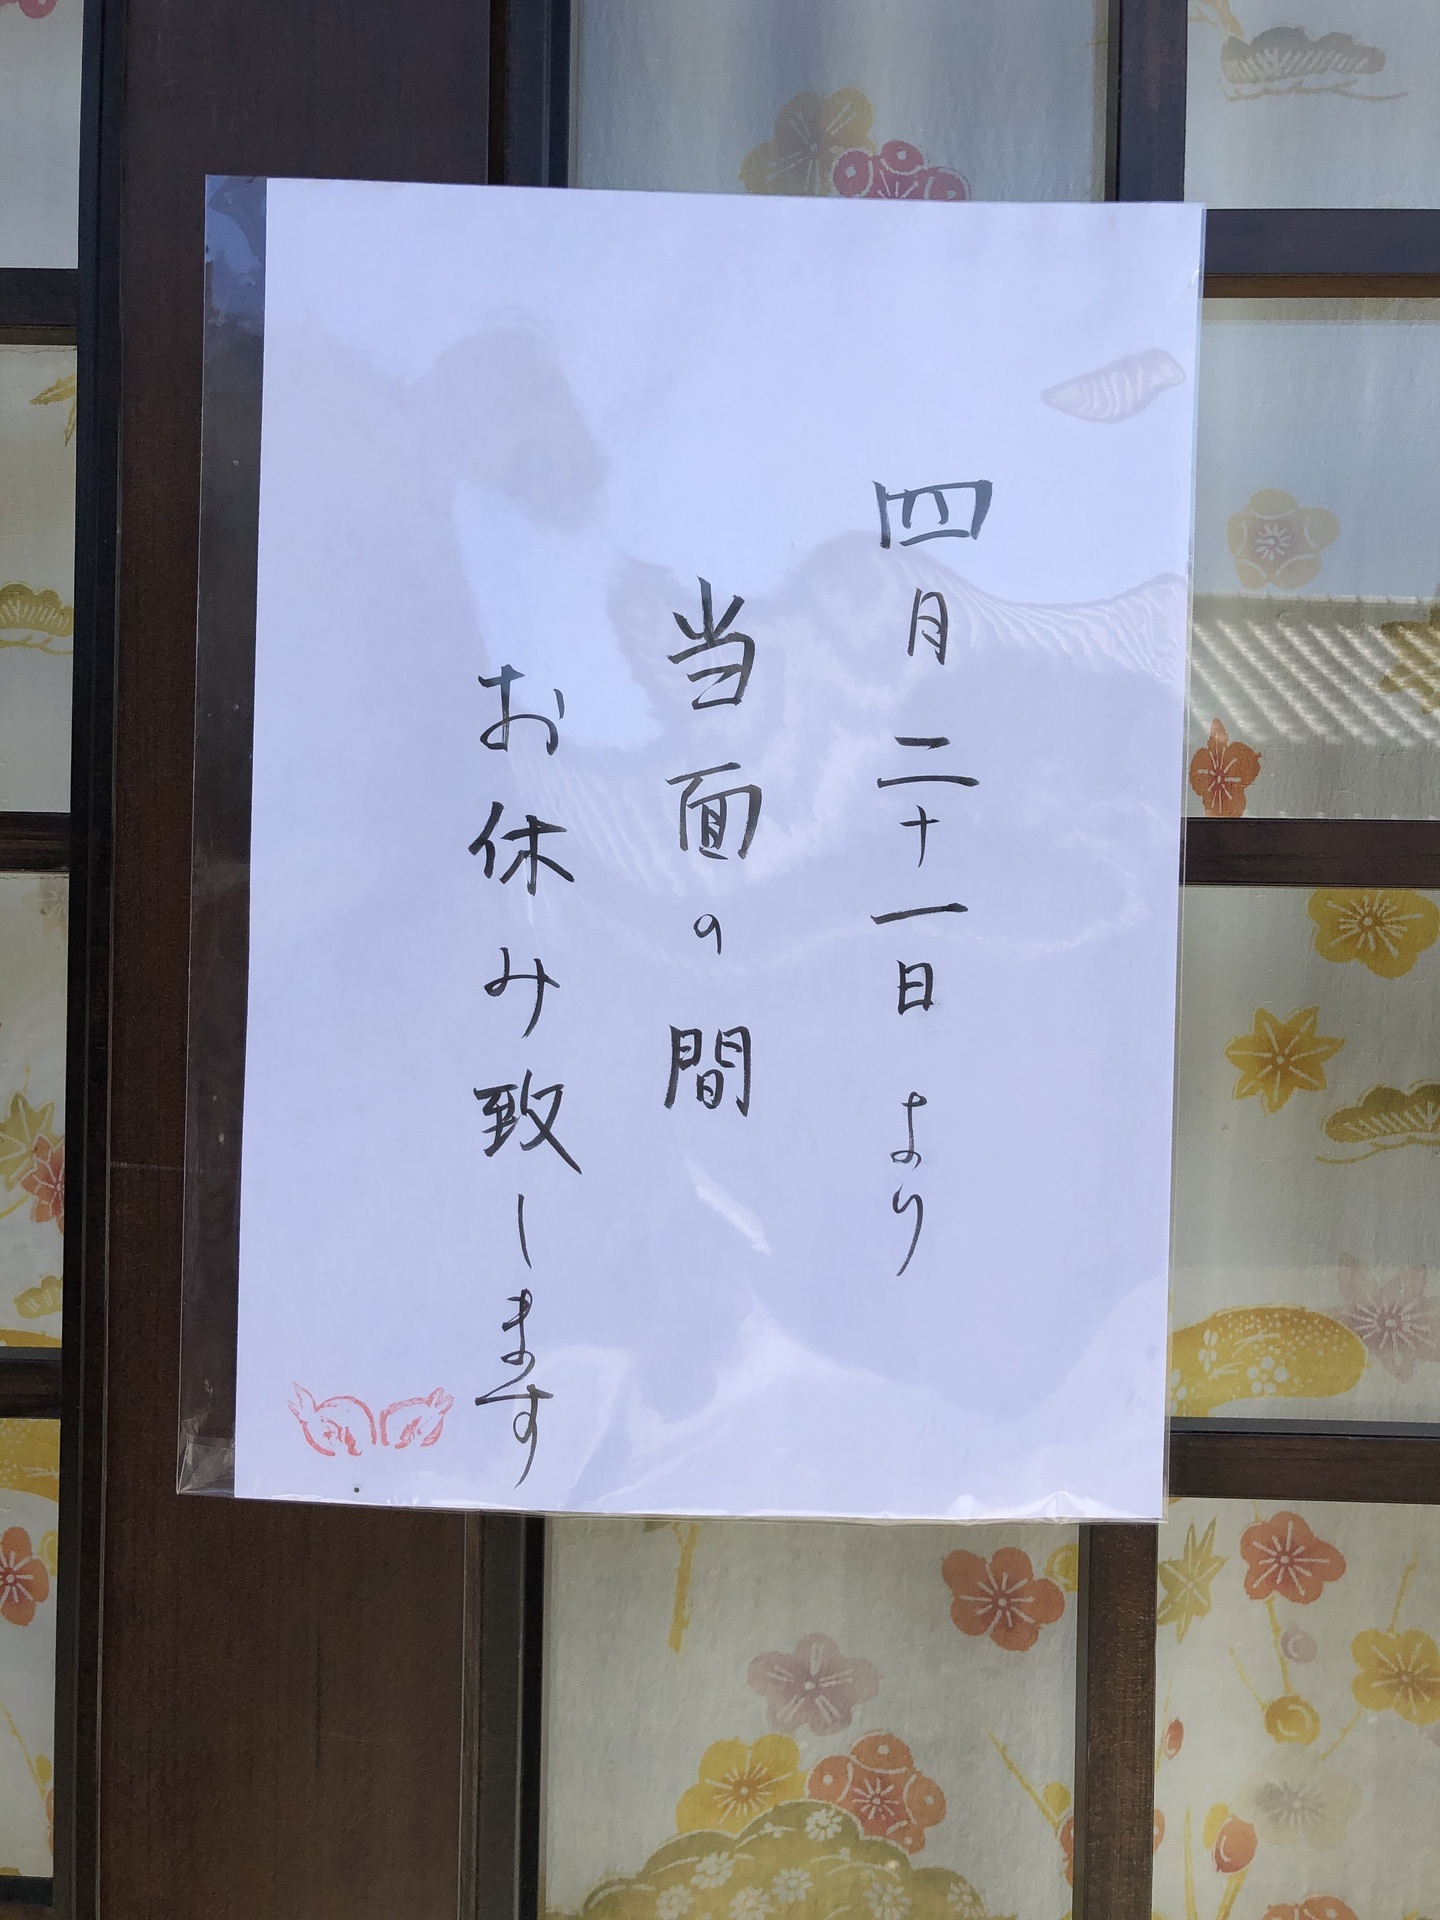 四月二十一日より
当面の間
お休み致します